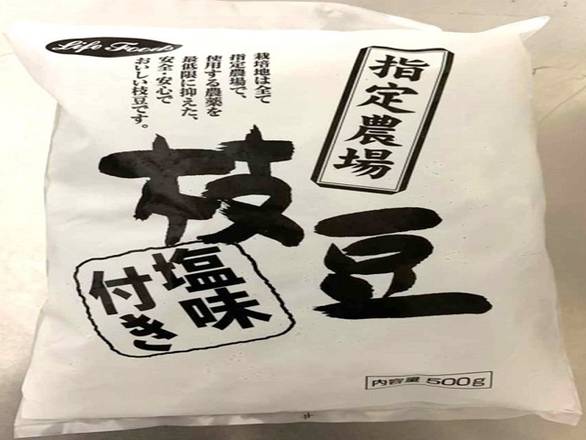 Life Foods
指定農場
栽培地は全て
指定農場で、
使用する農薬を
最低限に抑えた、
安全・安心で
おいしい枝豆です。
枝豆
塩味
付き
内容量 500g